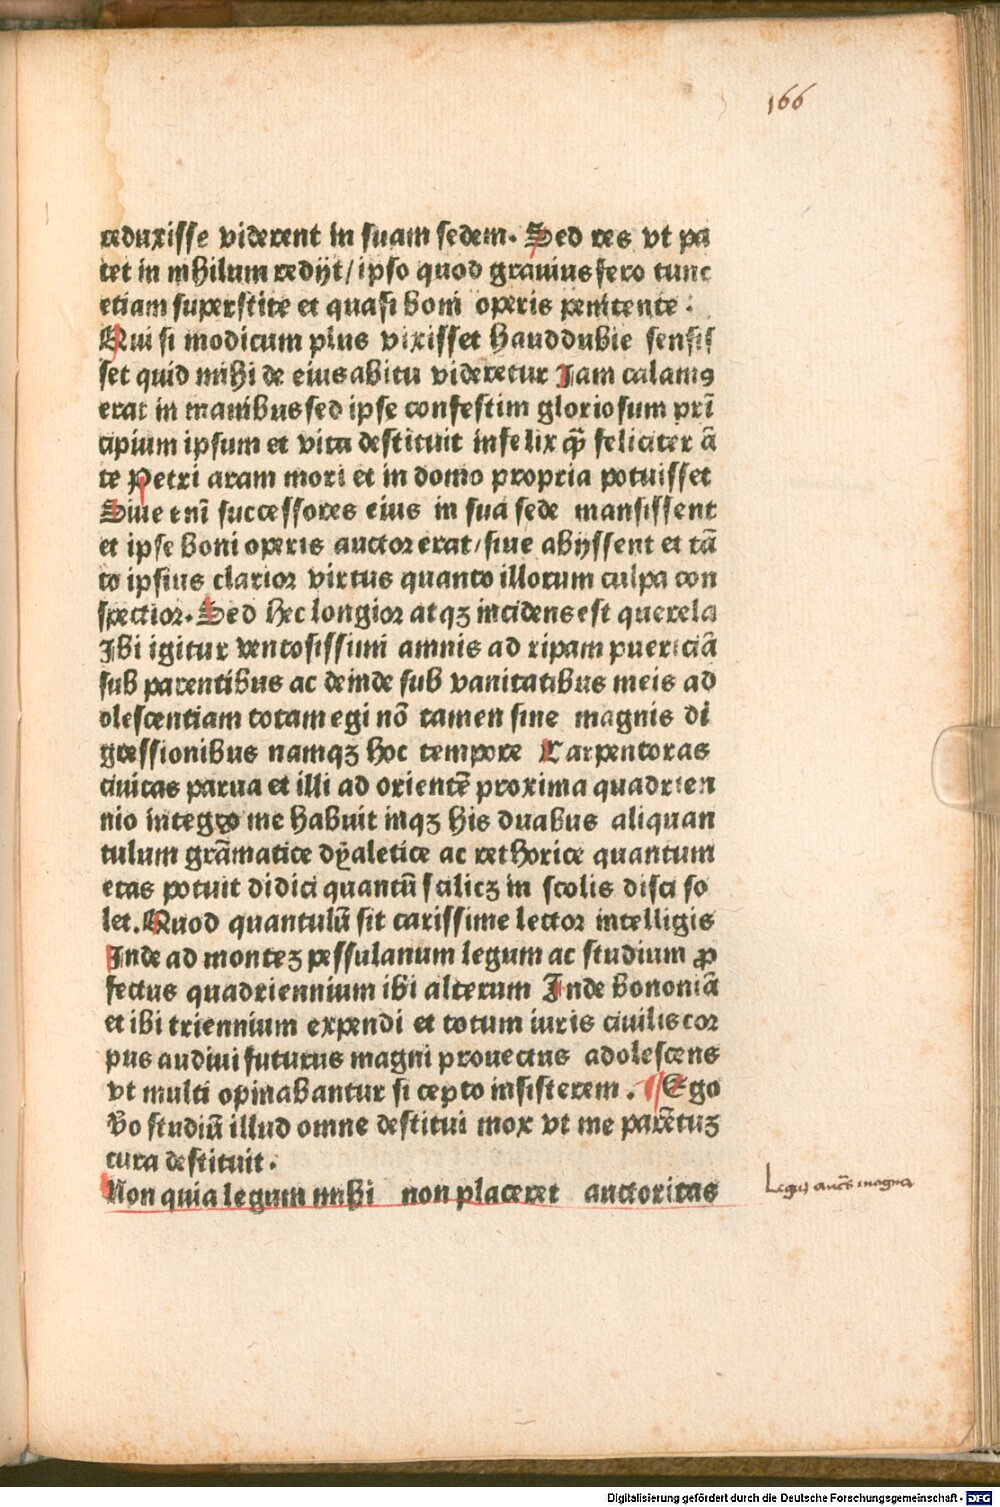 166
reduxisse viderent in suam sedem. Sed res vt pa
tet in nihilum redijt/ ipso quod grauius fero tunc
etiam superstite et quasi boni operis penitente :
Qui si modicum plus vixisset hauddubie sensis
set quid mihi de eius abitu videretur Jam calamꝰ
erat in manibus sed ipse confestim gloriosum pri̅
cipium ipsum et vita destituit infelix qꝫ̅ feliciter a̅
te Petri aram mori et in domo propria potuisset
Siue eni̅ successores eius in sua sede mansissent
et ipse boni operis auctor erat/ siue abyssent et ta̅
to ipsius clarior virtus quanto illorum culpa con
spectior. Sed hec longior atqꝫ incidens est querela
Jbi igitur ventosissimi amnis ad ripam puericia̅
sub parentibus ac deinde sub vanitatibus meis ad
olescentiam totam egi no̅ tamen sine magnis di
gressionibus namqꝫ hoc tempore Carpentoras
ciuitas parua et illi ad oriente̅ proxima quadrien
nio integro me habuit inqꝫ his duabus aliquan
tulum gra̅matice dyaletice ac rethorice quantum
etas potuit didici quantu̅ scilicꝫ in scolis disci so
let. Quod quantulu̅ sit carissime lector intelligis
Jnde ad monteꝫ pessulanum legum ac studium ꝓ
fectus quadriennium ibi alterum Jnde bononia̅
et ibi triennium expendi et totum iuris ciuilis cor
pus audiui futurus magni prouectus adolescens
vt multi opinabantur si cepto insisterem. ¶ Ego
v̅o studiu̅ illud omne destitui mox vt me pare̅tuꝫ
cura destituit.
Non quia legum mihi non placeret auctoritas
Legū auct̅s magna
Digitalisierung gefördert durch die Deutsche Forschungsgemeinschaft - DFG